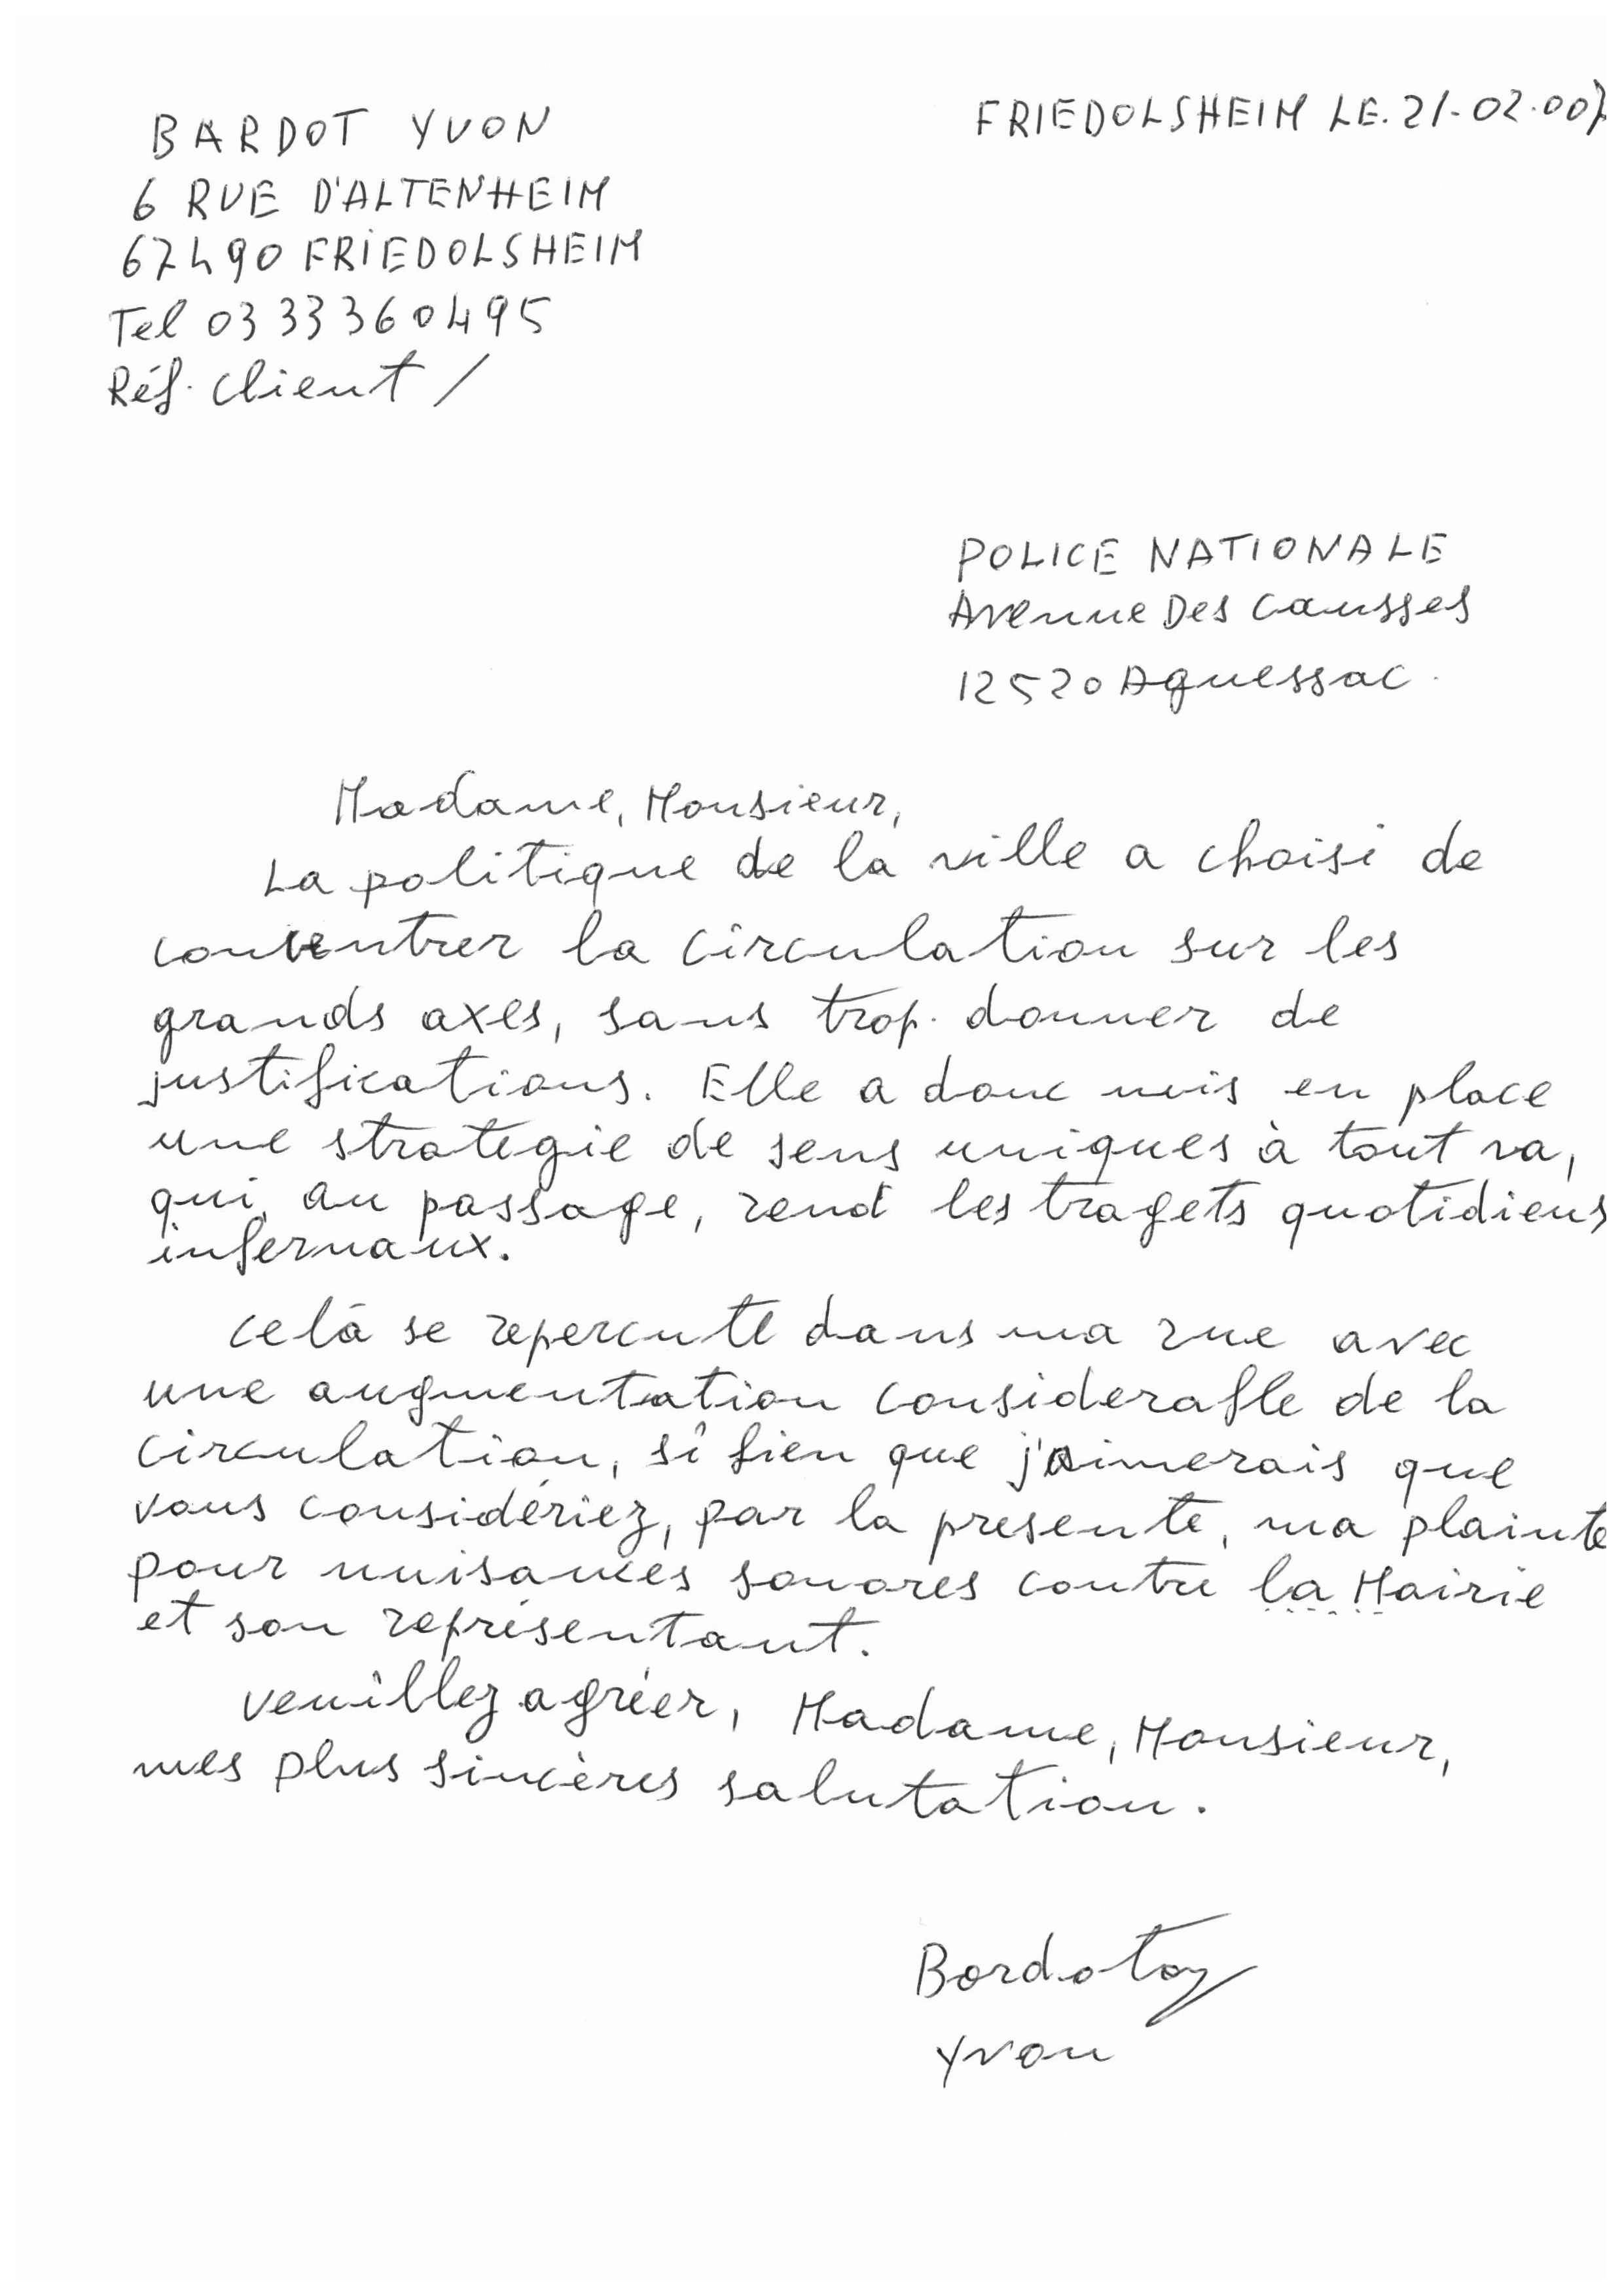 BARDOT YVON
FRIEDOLSHEIM LE. 21-02.007
6 RUE D'ALTENHEIM
67490 FRIEDOLSHEIM
Tel 03 33 36 04 95
Réf. Client /
POLICE NATIONALE
Avenue Des Causses
12520 Aguessac.
Madame, Monsieur,
La politique de la ville a choisi de
concentrer la circulation sur les
grands axes, sans trop donner de
justifications. Elle a donc mis en place
une strategie de sens uniques à tout va,
qui, au passage, rend les tragets quotidiens
infernaux.
Celà se repercute dans ma rue avec
une augmentation considerable de la
circulation, si bien que j'aimerais que
vous considériez, par la presente, ma plainte
pour nuisances sonores contre la Mairie
et son représentant.
Veuillez agréer, Madame, Monsieur,
mes plus sincères salutation.
Yvon